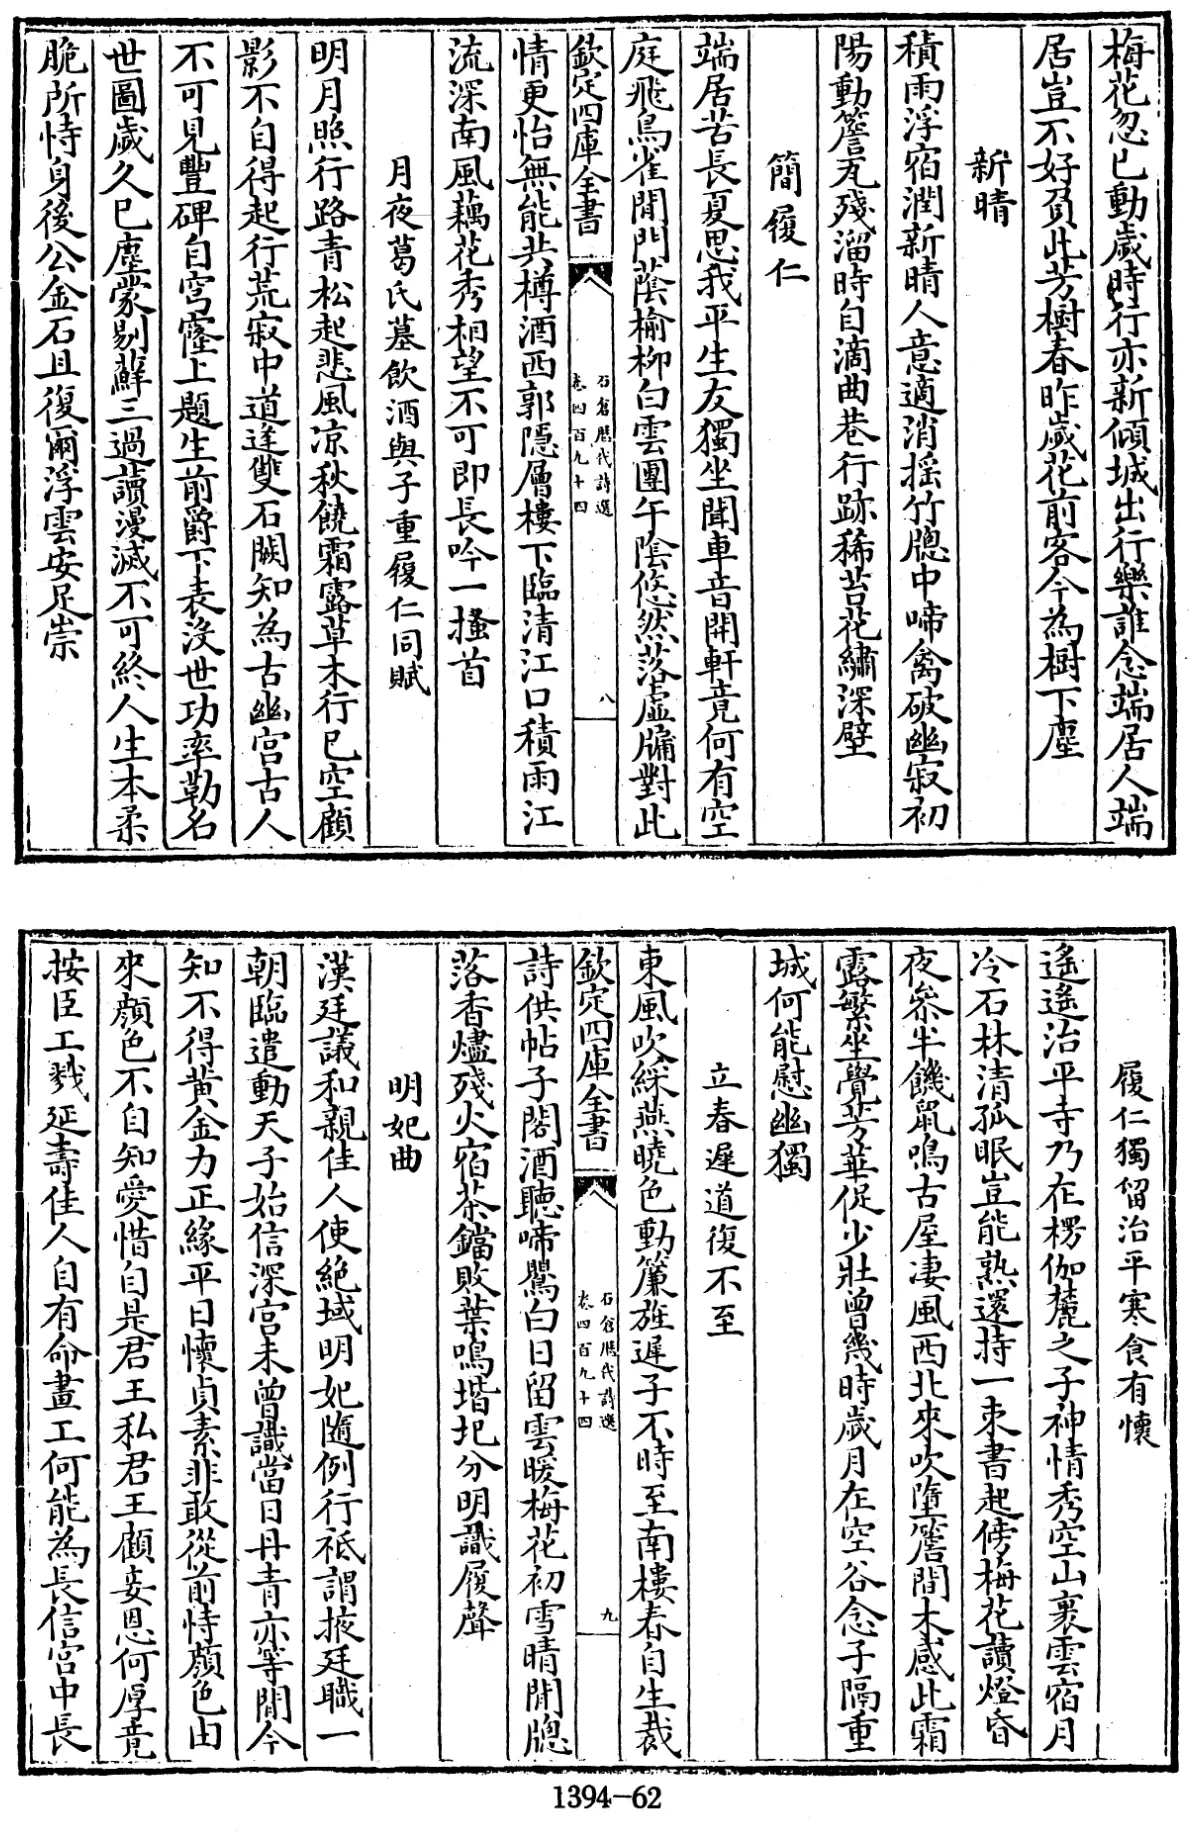 梅花忽已動歲時行亦新傾城出行樂誰念端居人端
居豈不好負此芳樹春昨歲花前客今為樹下塵
新晴
積雨浮宿潤新晴人意適消摇竹牕中啼禽破幽寂初
陽動簷瓦殘溜時自滴曲巷行跡稀苔花繡深壁
簡履仁
端居苦長夏思我平生友獨坐聞車音開軒竟何有空
庭飛鳥雀閒門蔭榆柳白雲團午陰悠然落虛牖對此
欽定四庫全書
石倉歷代詩選
卷四百九十四
八
情更怡無能共樽酒西郭隱層樓下臨清江口積雨江
流深南風藕花秀相望不可即長吟一搔首
月夜葛氏墓飲酒與子重履仁同賦
明月照行路青松起悲風凉秋饒霜露草木行已空顧
影不自得起行荒寂中道逢雙石闕知為古幽宫古人
不可見豐碑自穹窿上題生前爵下表没世功率勒名
世圖歲久已塵蒙剔蘚三過讀漫滅不可終人生本柔
脆所恃身後公金石且復爾浮雲安足崇
履仁獨留治平寒食有懷
遥遥治平寺乃在楞伽麓之子神情秀空山裏雲宿月
冷石林清孤眠豈能熟還持一束書起傍梅花讀燈昏
夜叅半饑鼠鳴古屋凄風西北來吹墮簷間木感此霜
露繁坐覺芳華促少壯曾幾時歲月在空谷念子隔重
城何能慰幽獨
立春遲道復不至
東風吹綵燕曉色動簾旌遲子不時至南樓春自生裁
欽定四庫全書
石倉歷代詩選
卷四百九十四
九
詩供帖子閣酒聽啼鸎白日留雲暖梅花初雪晴閒牕
落香燼殘火宿茶鐺敗葉鳴堦圯分明識履聲
明妃曲
漢廷議和親佳人使絶域明妃隨例行祗謂掖廷職一
朝臨遣動天子始信深宫未曾識當日丹青亦等閒今
知不得黄金力正緣平日懷貞素非敢從前恃顔色由
來顔色不自知愛惜自是君王私君王顧妾恩何厚竟
按臣工戮延壽佳人自有命畫工何能為長信宫中長
1394-62